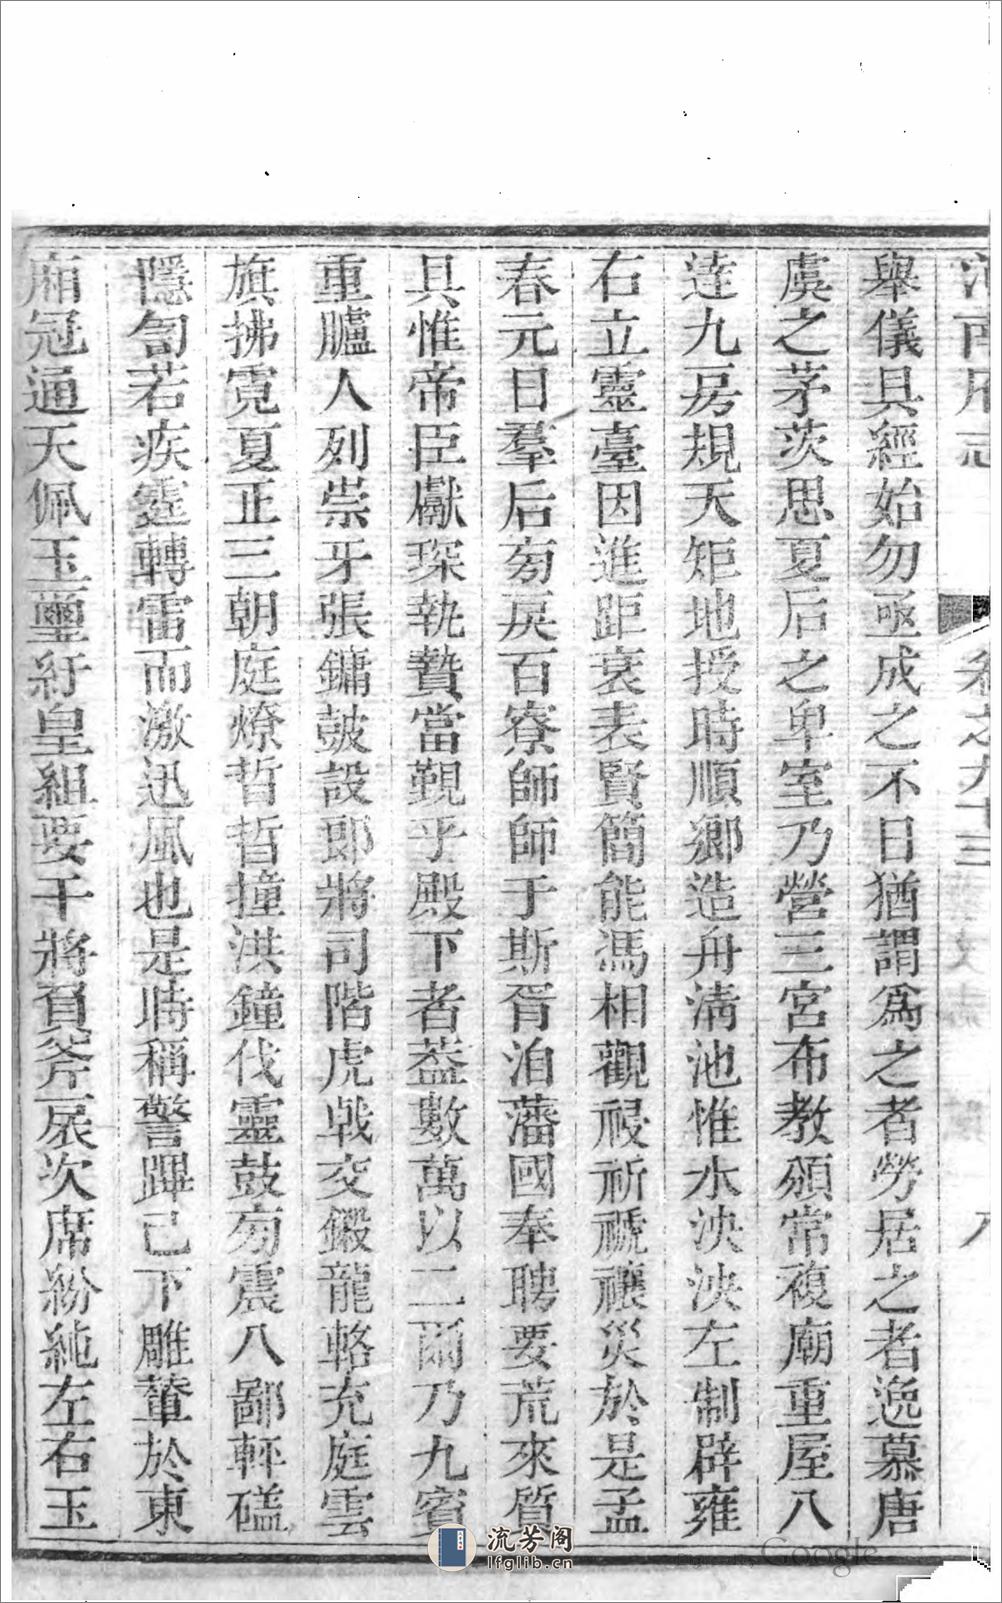 舉儀具經始勿亟成之不日猶謂爲之者勞居之者逸慕唐
虞之茅茨思夏后之卑室乃營三宮布教頒常複廟重屋八
達九房規天矩地授時順鄉造舟淸池惟水泱泱左制辟雍
右立靈臺因進距衰表賢簡能馮相觀祲祈禠禳災於是孟
春元日羣后旁戾百寮師師于斯胥洎藩國奉聘要荒來質
具惟帝臣獻琛執贄當覲乎殿下者蓋數萬以二爾乃九賓
重臚人列崇牙張鏞鼓設郎將司階虎戟交鎩龍輅充庭雲
旗拂霓夏正三朝庭燎晢晢撞洪鐘伐靈鼓旁震八鄙軯礚
隱訇若疾霆轉雷而激迅風也是時稱警蹕已下雕輦於東
廂冠通天佩玉璽紆皇組要干將負斧扆次席紛純左右玉
河南府志
卷之九十三
八
流芳阁
lfglib.cn
Google